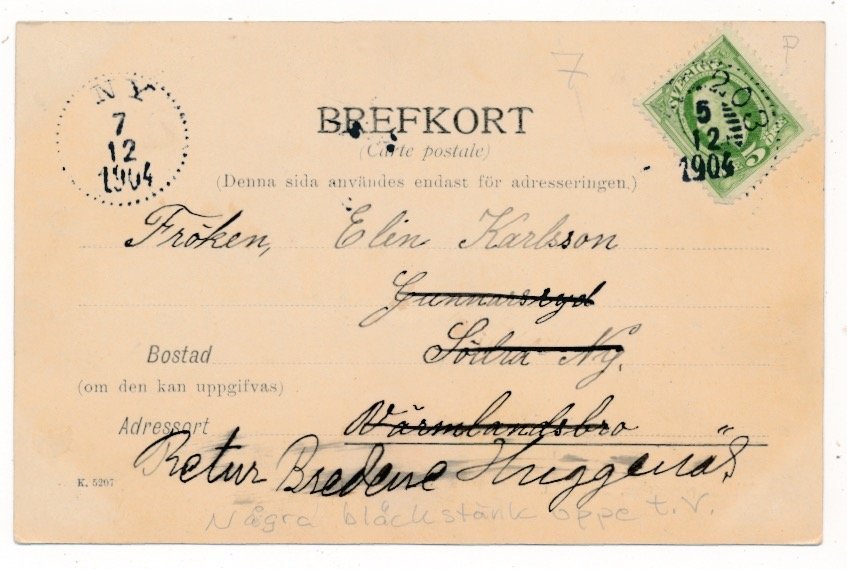 7
P
NY
7
12
1904
203
5
12
1904
5
BREFKORT
(Carte postale)
(Denna sida användes endast för adresseringen.)
Fröken, Elin Karlsson
Gunnarsryd
Bostad Södra Ny.
(om den kan uppgifvas)
Adressort Värmlandsbro
Retur Bredene Huggenäs
K. 5207
Några bläckstänk uppe t.v.